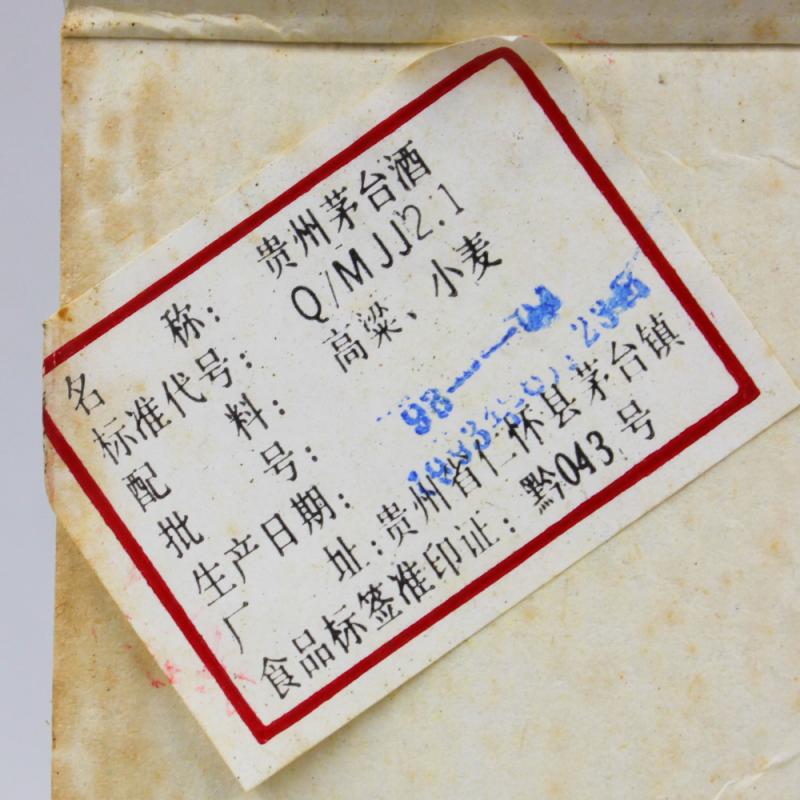 名 称：贵州茅台酒
标准代号：Q/MJJ2.1
配 料：高粱、小麦
批 号：98——
生产日期：
厂 址：贵州省仁怀县茅台镇
食品标签准印证：黔043号